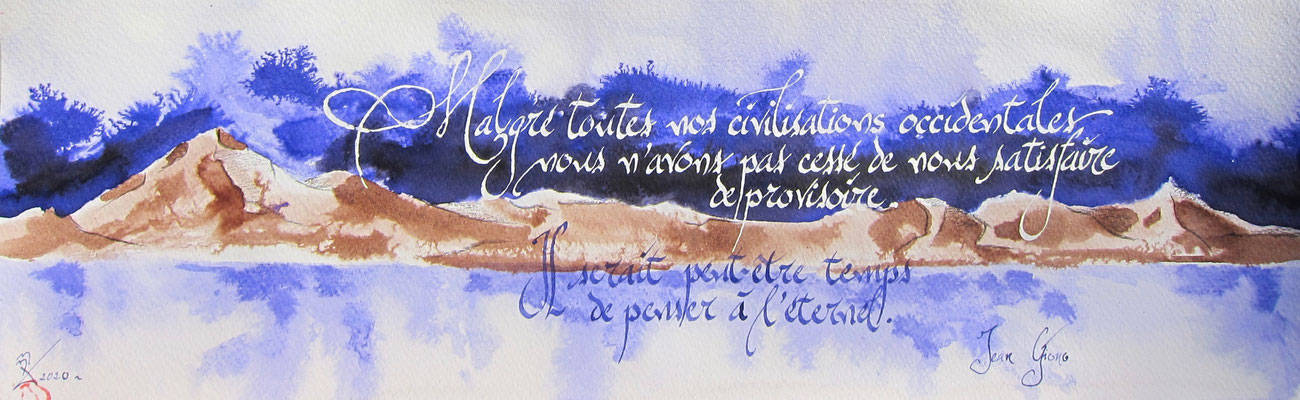 Malgré toutes nos civilisations occidentales,
nous n'avons pas cessé de nous satisfaire
de provisoire.
Il serait peut-être temps
de penser à l'éternel.
Jean Giono
2020